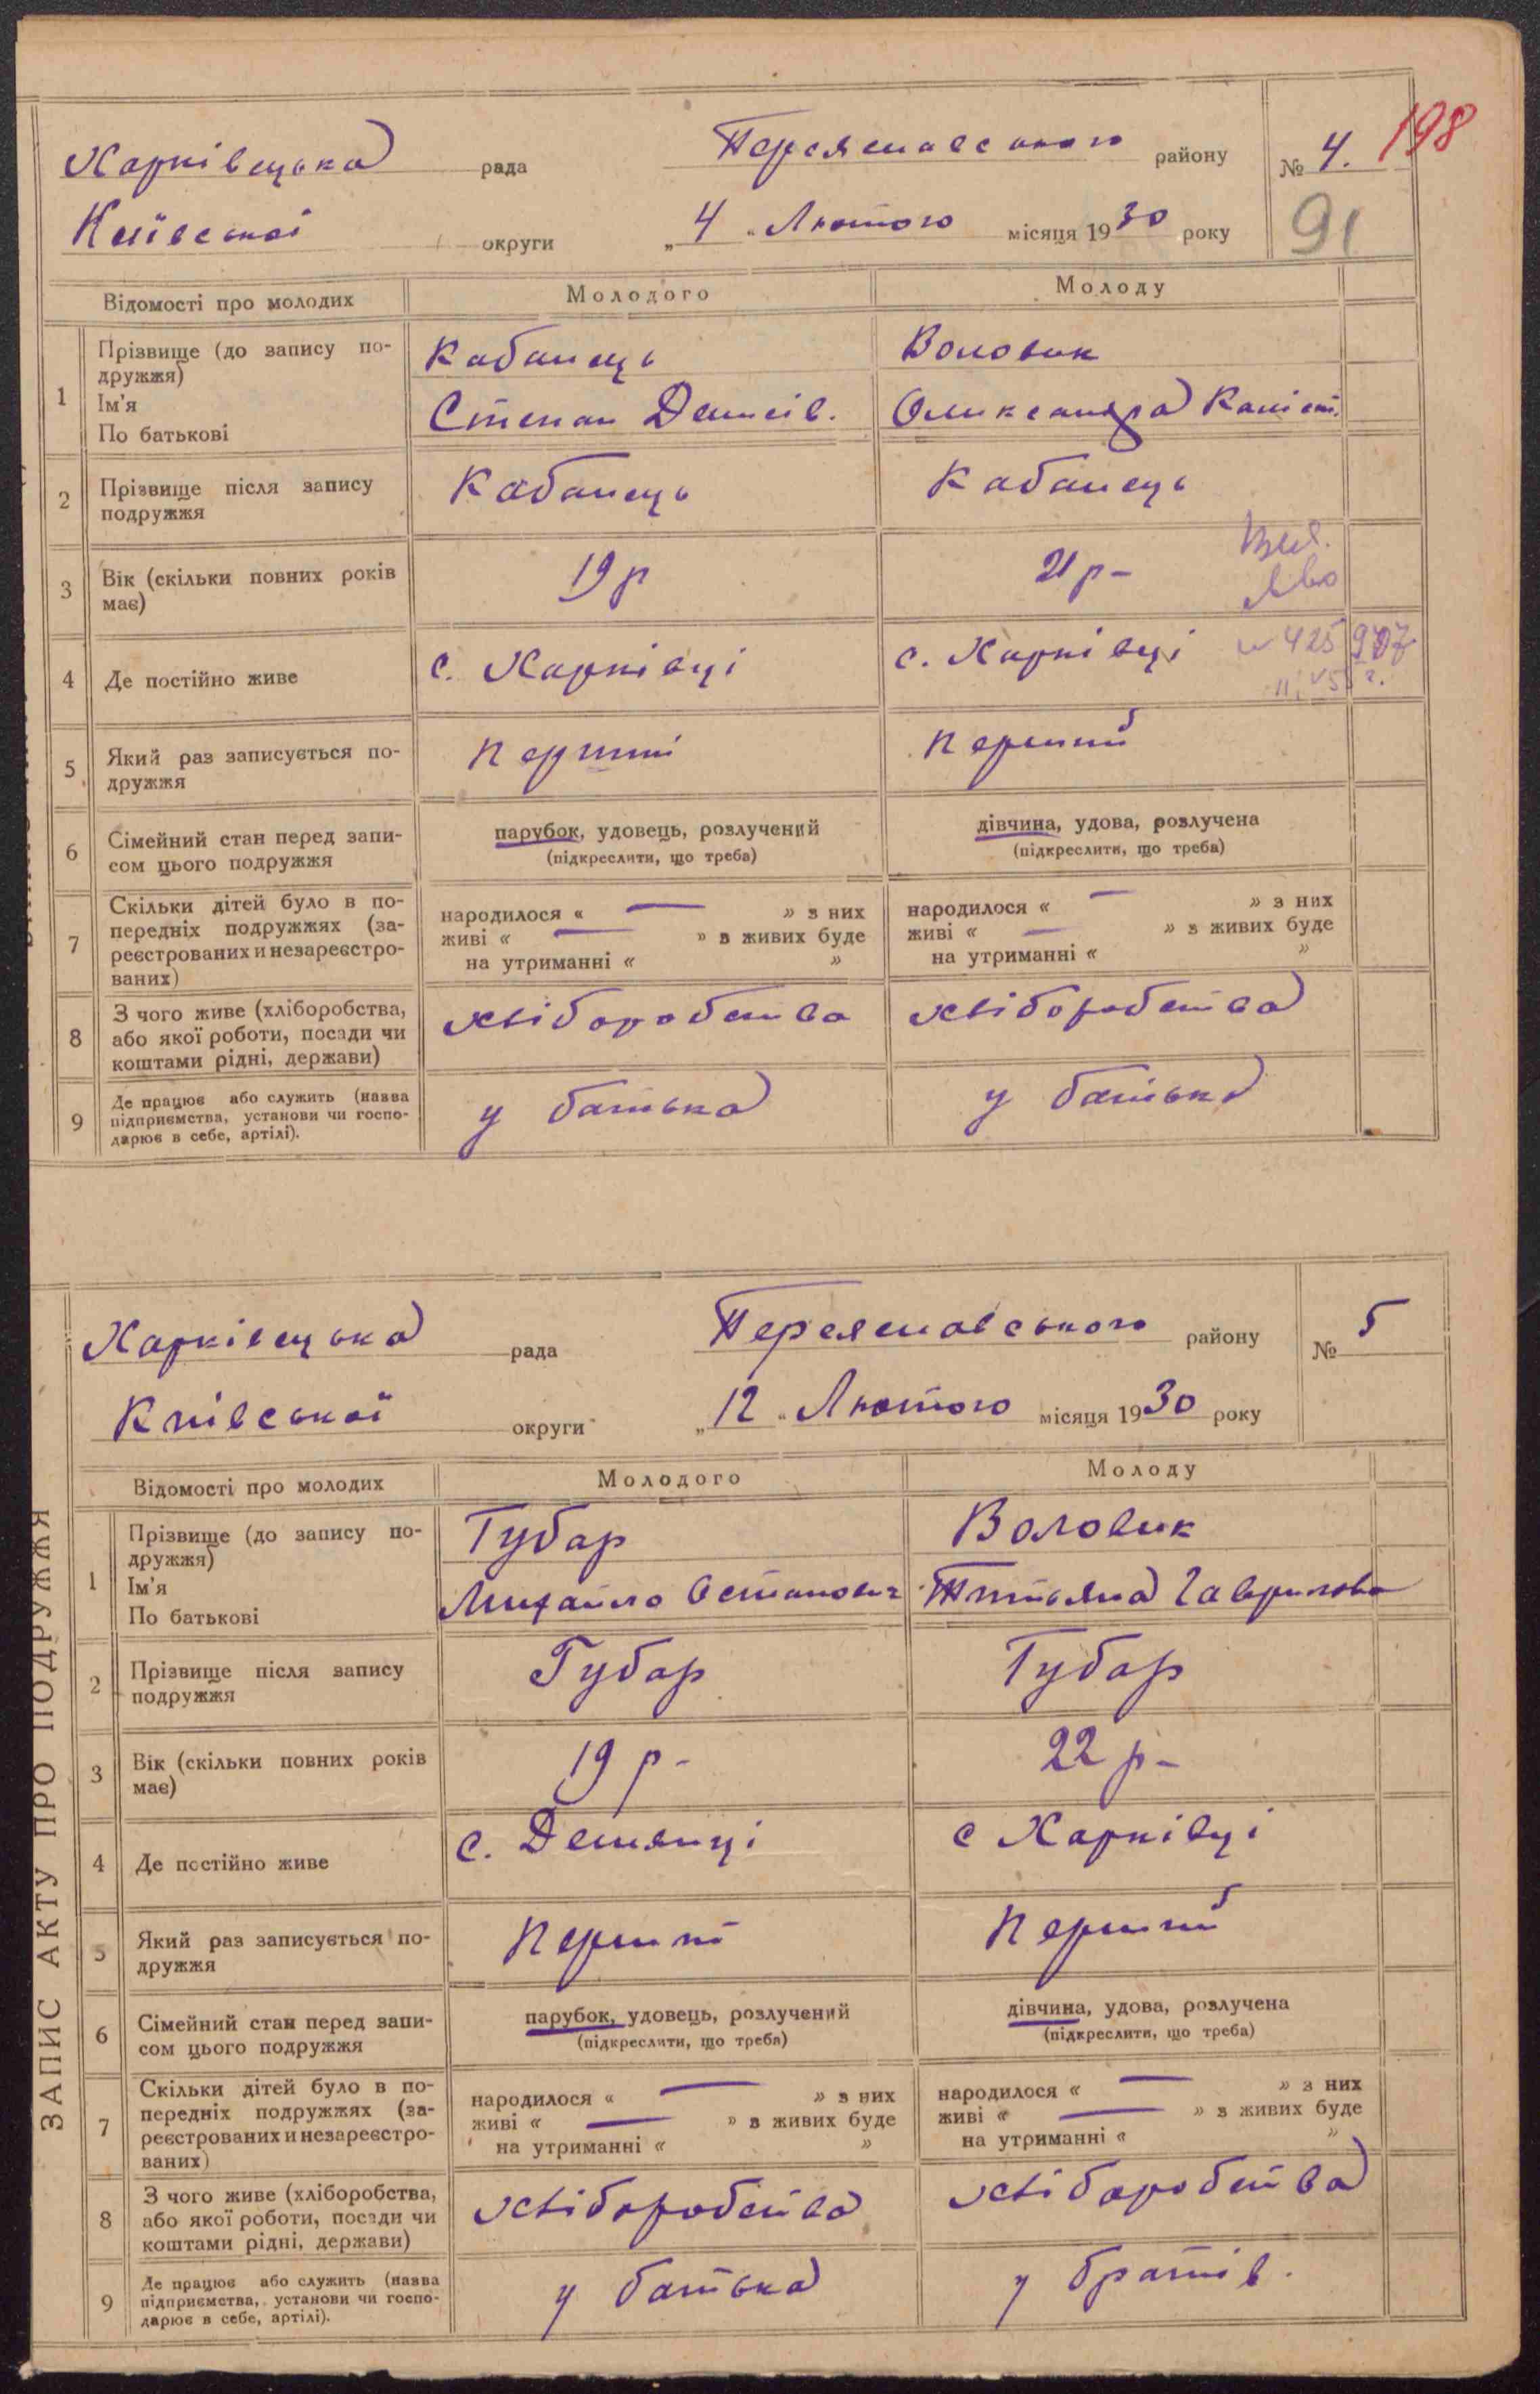 Харківецька рада Переяславського району № 4. 198
Київської округи „4" Лютого місяця 1930 року 91
Відомості про молодих Молодого Молоду
1 Прізвище (до запису по-
дружжя) Кабанець Воловик
Ім'я
По батькові Степан Денисів. Олександра
2 Прізвище після запису
подружжя Кабанець Кабанець
3 Вік (скільки повних років
має) 19 р 21 р-
4 Де постійно живе с. Харківці с. Харківці
5 Який раз записується по-
дружжя перший перший
6 Сімейний стан перед запи-
сом цього подружжя
парубок, удовець, розлучений
(підкреслити, що треба)
дівчина, удова, розлучена
(підкреслити, що треба)
7 Скільки дітей було в по-
передніх подружжях (за-
реєстрованих и незареєстро-
ваних)
народилося « — » з них
живі « — » з живих буде
на утриманні « »
народилося « — » з них
живі « — » з живих буде
на утриманні « »
8 З чого живе (хліборобства,
або якої роботи, посади чи
коштами рідні, держави)
хліборобства хліборобства
9 Де працює або служить (назва
підприємства, установи чи госпо-
дарює в себе, артілі).
у батька у батька
ЗАПИС АКТУ ПРО ПОДРУЖЖЯ
Харківецька рада Переяславського району № 5
Київської округи „12" Лютого місяця 1930 року
Відомості про молодих Молодого Молоду
1 Прізвище (до запису по-
дружжя) Губар Воловик
Ім'я
По батькові Михайло Остапович Титьяна Гаврилова
2 Прізвище після запису
подружжя Губар Губар
3 Вік (скільки повних років
має) 19 р- 22 р-
4 Де постійно живе с. Демянці с Харківці
5 Який раз записується по-
дружжя перший перший
6 Сімейний стан перед запи-
сом цього подружжя
парубок, удовець, розлучений
(підкреслити, що треба)
дівчина, удова, розлучена
(підкреслити, що треба)
7 Скільки дітей було в по-
передніх подружжях (за-
реєстрованих и незареєстро-
ваних)
народилося « — » з них
живі « — » з живих буде
на утриманні « »
народилося « — » з них
живі « — » з живих буде
на утриманні « »
8 З чого живе (хліборобства,
або якої роботи, посади чи
коштами рідні, держави)
хліборобства хліборобства
9 Де працює або служить (назва
підприємства, установи чи госпо-
дарює в себе, артілі).
у батька у братів.